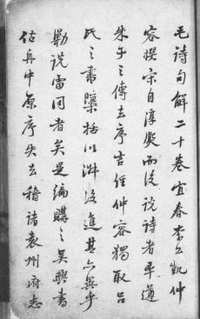 毛詩句解二十卷宜春李公凱仲
容撰宋自淳熙而後說詩者率遵
朱子之傳去序言經仲容獨取呂
氏之書檃括以淑後進其亦異乎
勦說雷同者矣是編購之吳興書
估舟中原序失去稽諸袁州府志